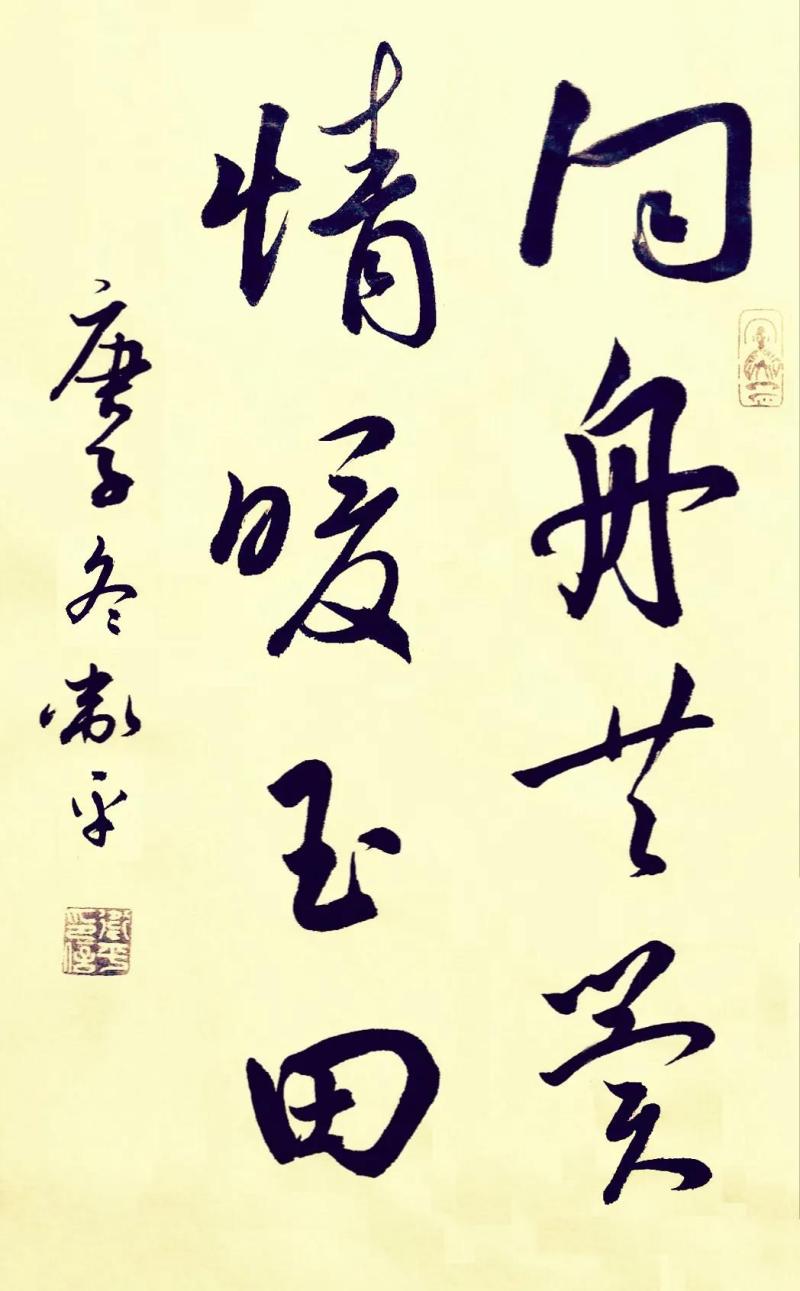 同舟共爨
情暖玉田
庚子冬衞平